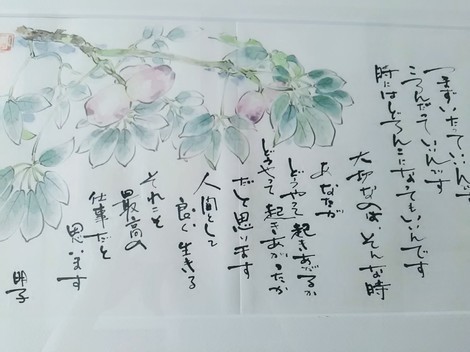 つまずいたっていいんです
ころんだっていいんです
時にはどろんこになってもいいんです
大切なのは、そんな時
あなたが
どうやって起きあがるか
どうやって起きあがったか
だと思います
人間として
良く生きる
それこそ
最高の
仕事だと
思います
明子